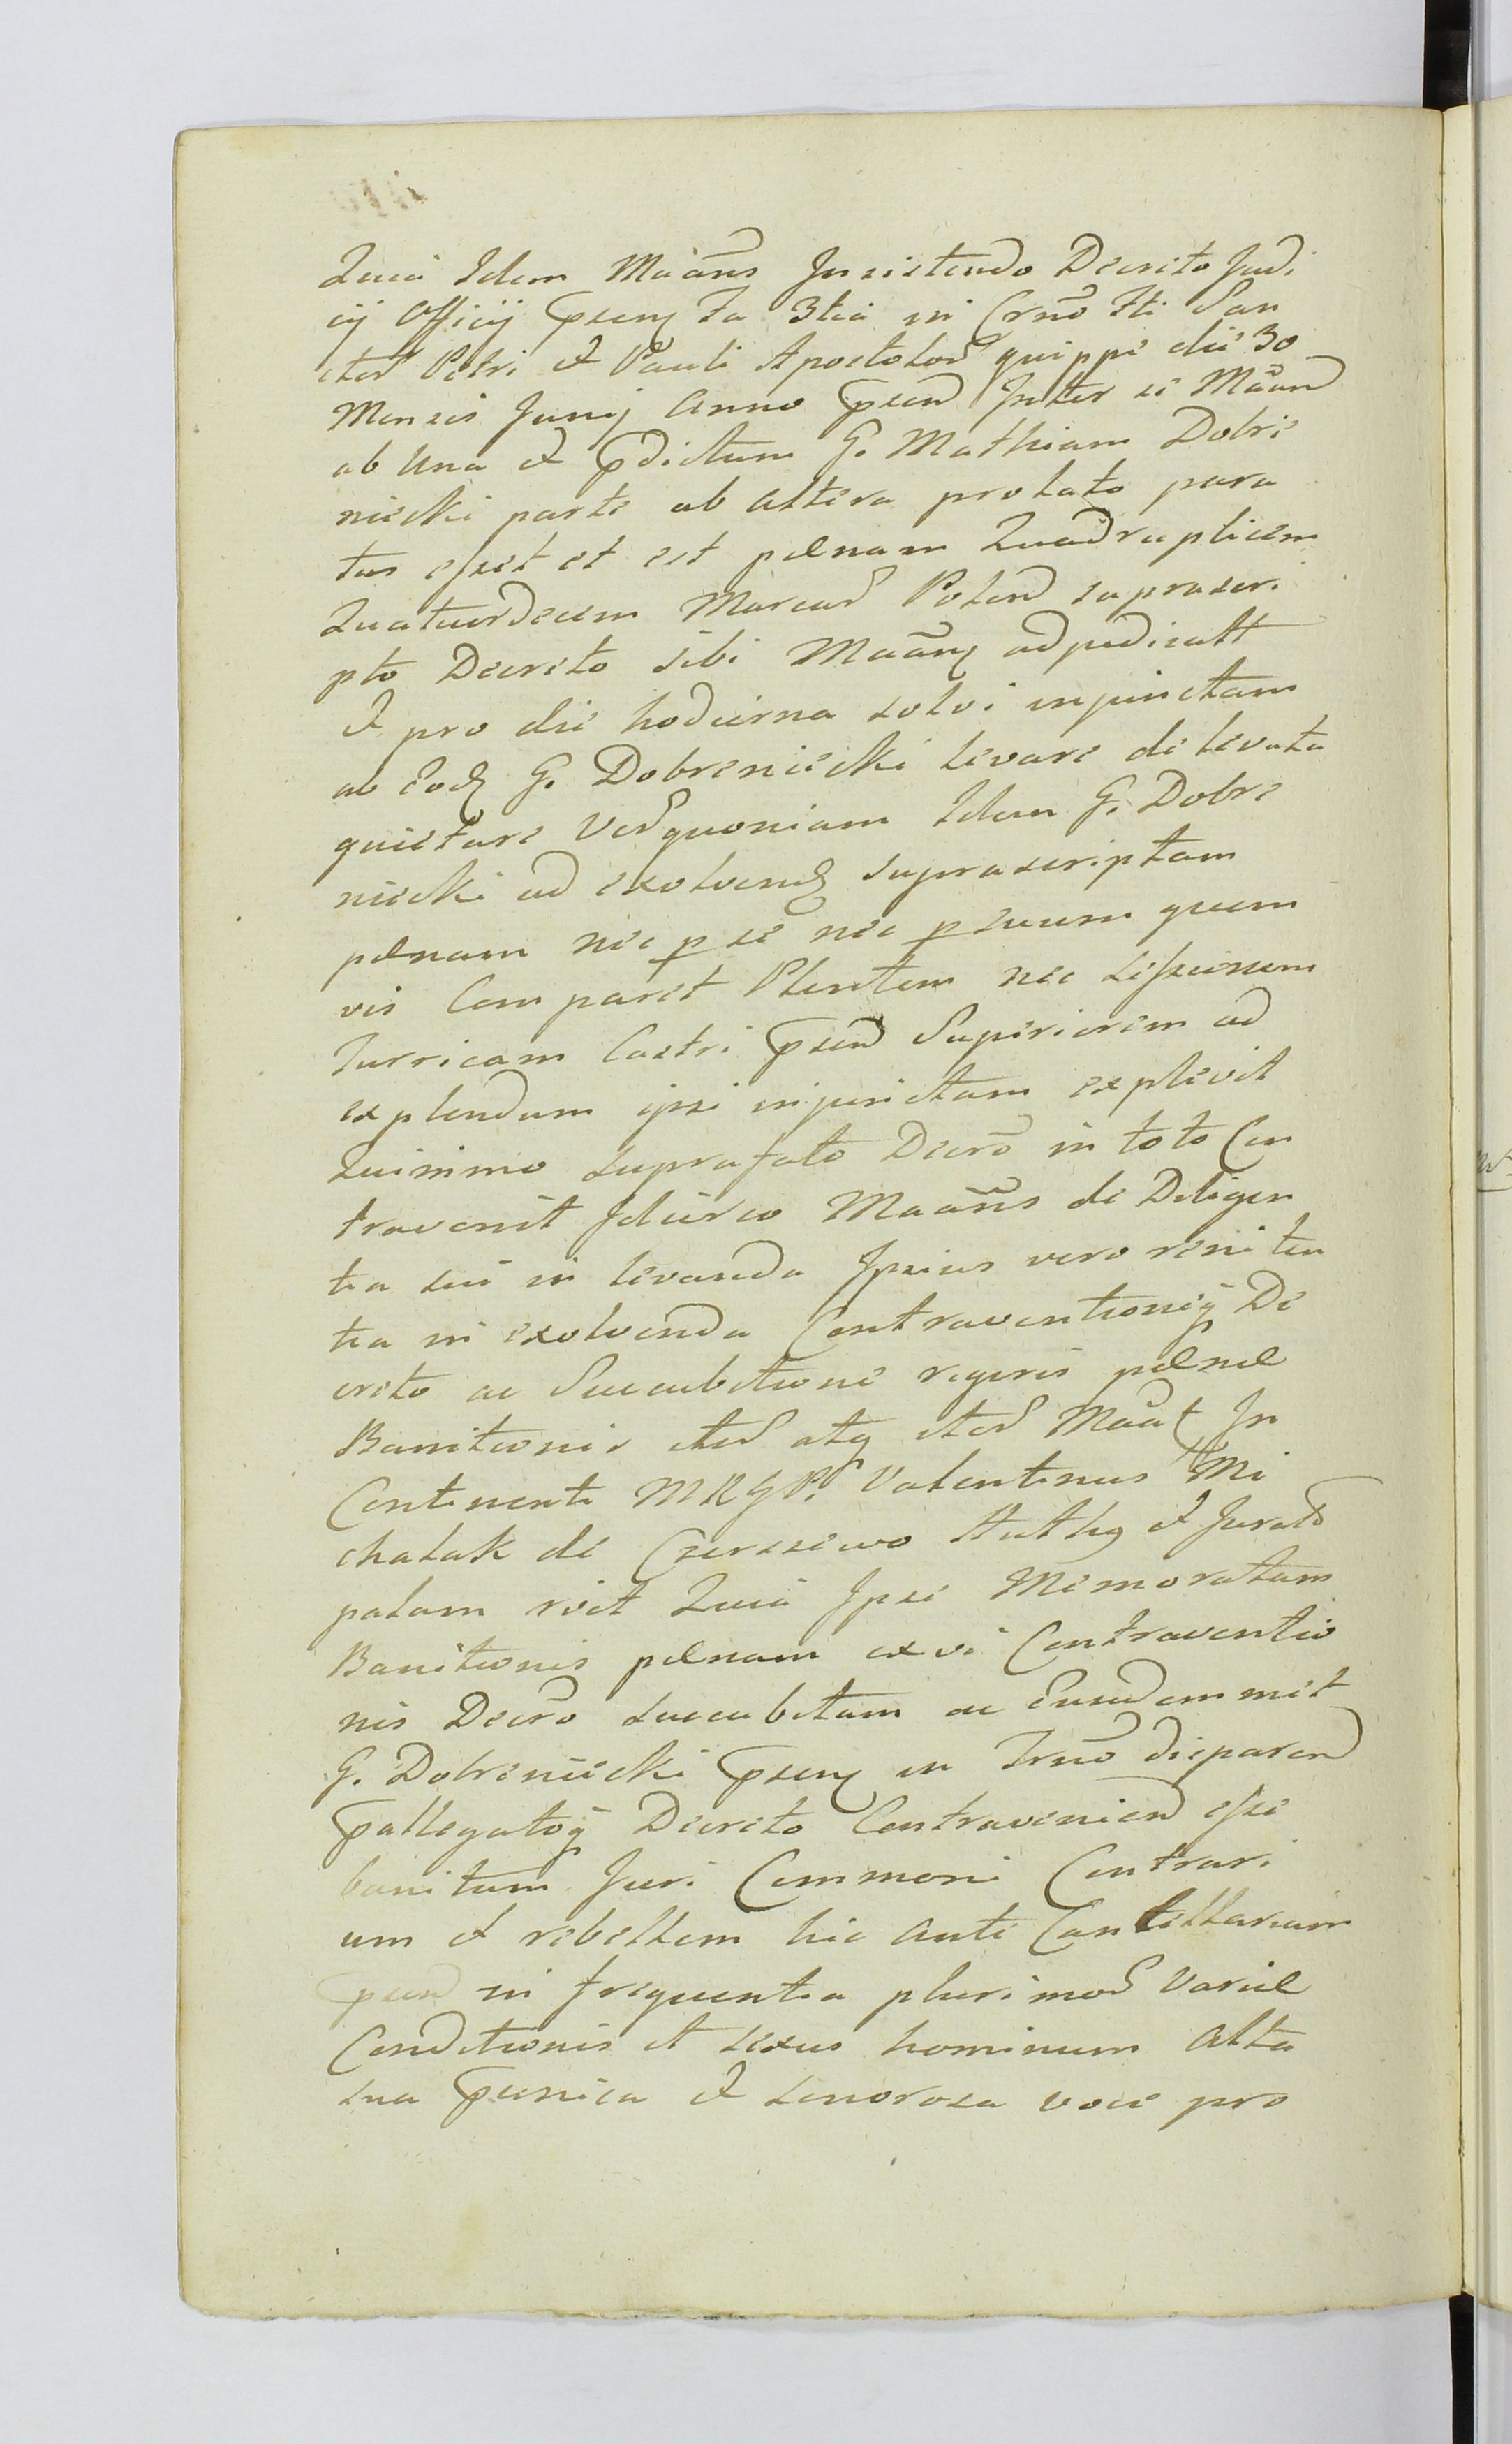 Quia Idem Maãns Insistendo Decreto Judi
cij Officij pseng Fa 3tia in Crno Fti San
ctor Petri et Pauli Apostolor quippe die 30
Mensis Junij Anno psend Inter se Maãnd
ab Una et pdictum G. Mathiam Dobre
niecki parte ab altera prolato para
tus esset et est pænam Quadruplicem
Quatuordecem Marcar Polond suprascri
pto Decreto sibi Maãng adjudicatt
et pro die hodierna solvi injunctam
ab Eodq G. Dobreniecki levare de levata
quietare Verquoniam Idem G. Dobre
niecki ad exolvendq suprascriptam
pænam nec p se nec p suum quem
vis Comparet Plentem nec Sessionem
Turricam Castri psend Superiorem ad
explendum ipsi injunctam explevit
Quinimo suprafato Decro in toto Con
travenit Idcirco Maãns de Diligen
tia sui in levanda Ipsius vero reniten
tia in exolvenda Contraventionēq De
creto ac Succubitione rigoris pænæ
Banitionis ster atq ster Maãt In
Continenti MRGP. Valentinus Mi
chalak de Czerzewo Authq et Jurato
palam rvit Quia Ipse Memoratam
Banitionis pænam ex vi Contraventio
nis Decro succubitam ac Eundemmet
G. Dobreniecki pseng in Trno disparend
pallegatoq Decreto Contraveniend esse
banitum Juri Commoni Contrari
um et rebellem hic ante Cancellariam
psend in frequentia plurimor Variæ
Conditionis et sexus hominum alta
sua punica et sonorosa voce pro